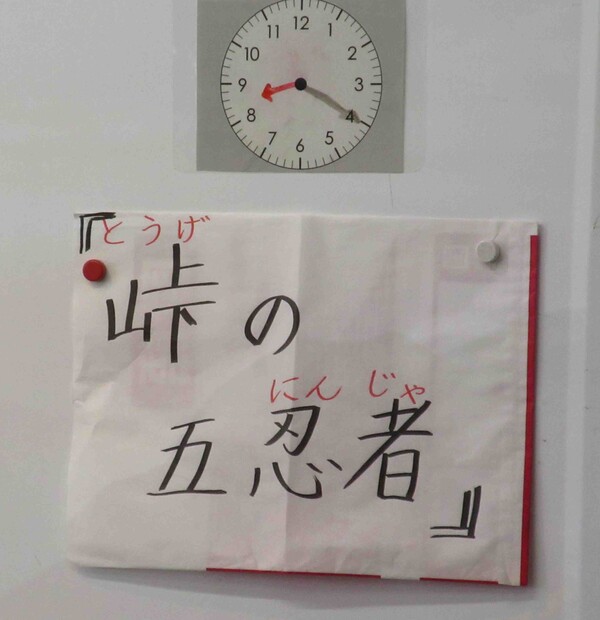 12
1
2
3
4
5
6
7
8
9
10
11
『とうげ
峠の
にんじゃ
五忍者』